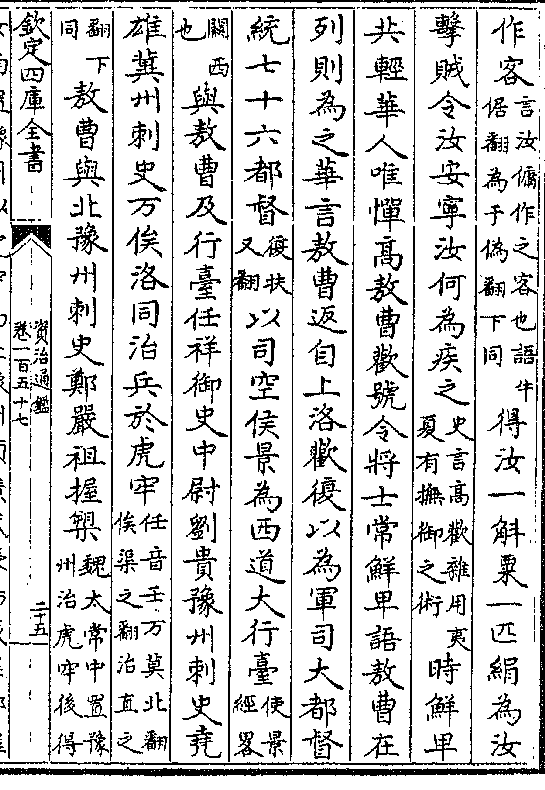 作客言汝傭作之客也語牛倨翻為于偽翻下同得汝一斛粟一匹絹為汝
擊賊令汝安寧汝何為疾之史言高歡雜用夷夏有撫御之術時鮮卑
共輕華人唯憚高敖曹歡號令將士常鮮卑語敖曹在
列則為之華言敖曹返自上洛歡復以為軍司大都督
統七十六都督復扶又翻以司空侯景為西道大行臺使景經畧
關西也與敖曹及行臺任祥御史中尉劉貴豫州刺史堯
雄冀州刺史万俟洛同治兵於虎牢任音壬万莫北翻俟渠之翻治直之
翻下同敖曹與北豫州刺史鄭嚴祖握槊魏太常中置豫州治虎牢後得
欽定四庫全書
資治通鑑
卷一百五十七
二十五